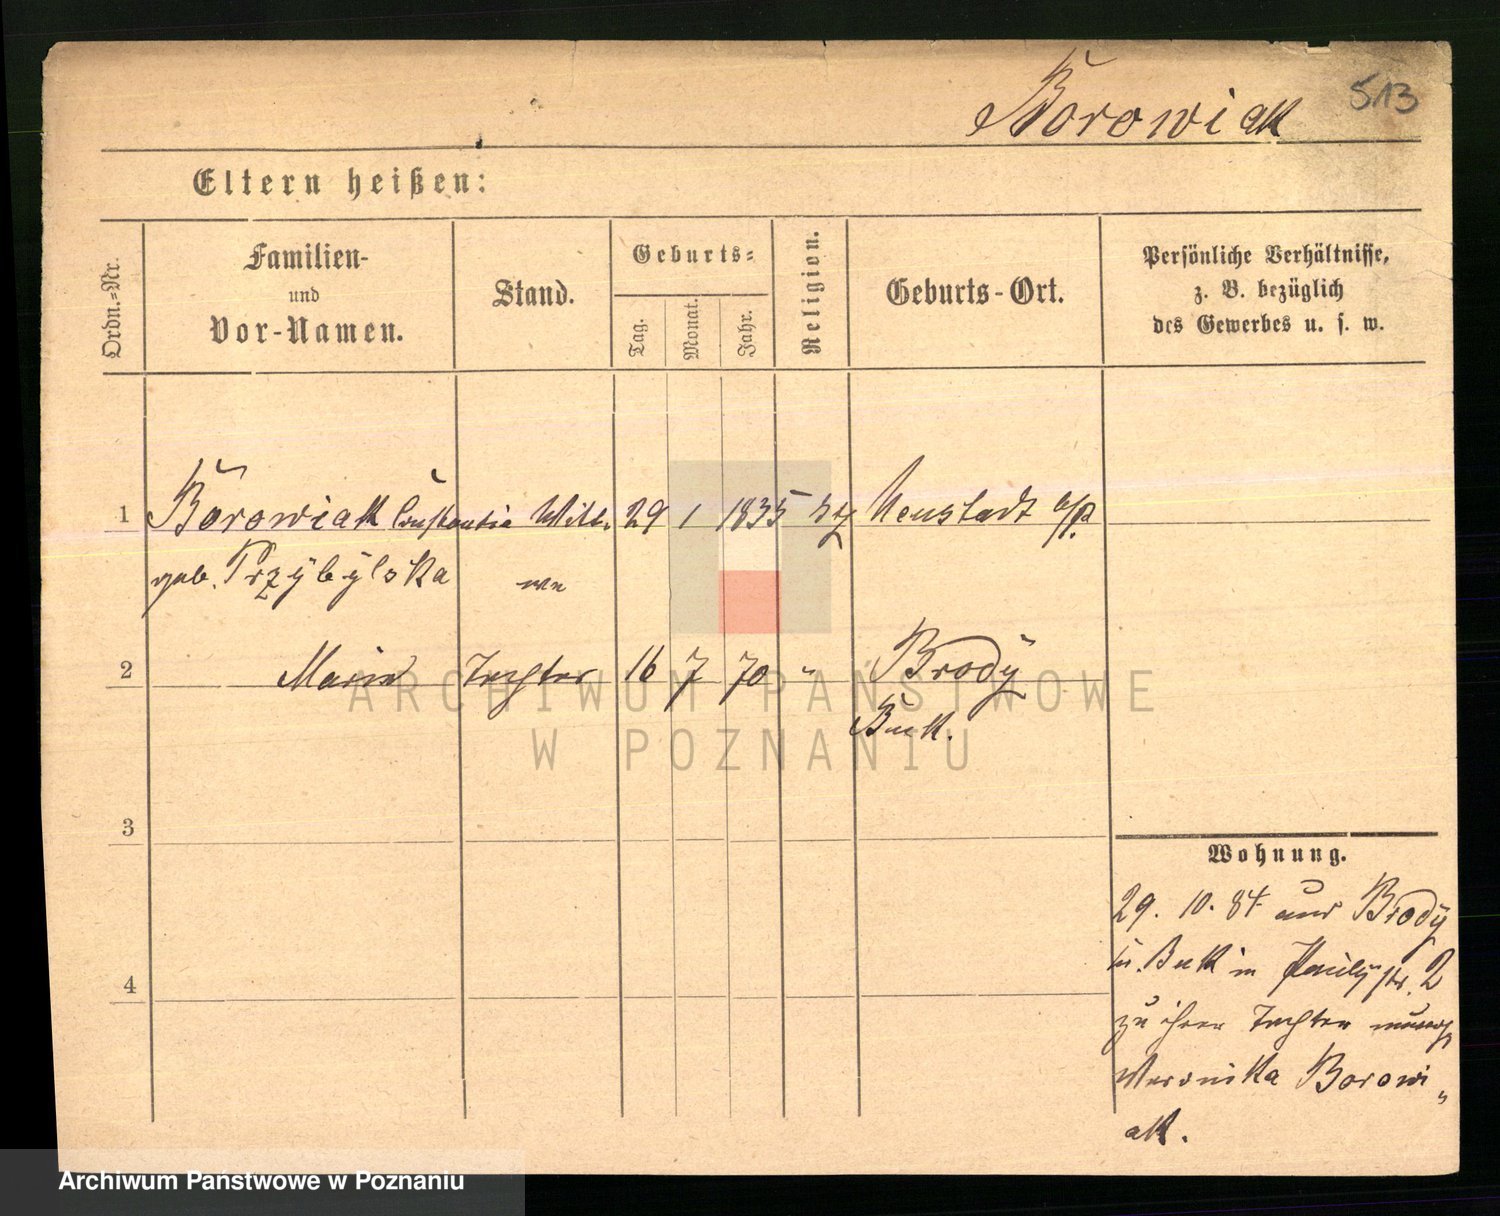 513
Borowiak
Eltern heißen:
Ordn.-Nr.
Familien-
und
Vor-Namen.
Stand.
Geburts-
Tag.
Monat.
Jahr.
Religion.
Geburts-Ort.
Persönliche Verhältnisse,
z. B. bezüglich
des Gewerbes u. s. w.
1 Borowiak Constantia Witt- 29 1 1835 Neustadt a/P.
geb. Przybylska we
2 Maria Tochter 16 7 70 " Brody
Buk.
3
4
Wohnung.
29. 10. 84 aus Brody
Buk in Paulystr. 2
zu ihrer Tochter
Weronika Borowi-
ak.
ARCHIWUM PAŃSTWOWE
W POZNANIU
Archiwum Państwowe w Poznaniu